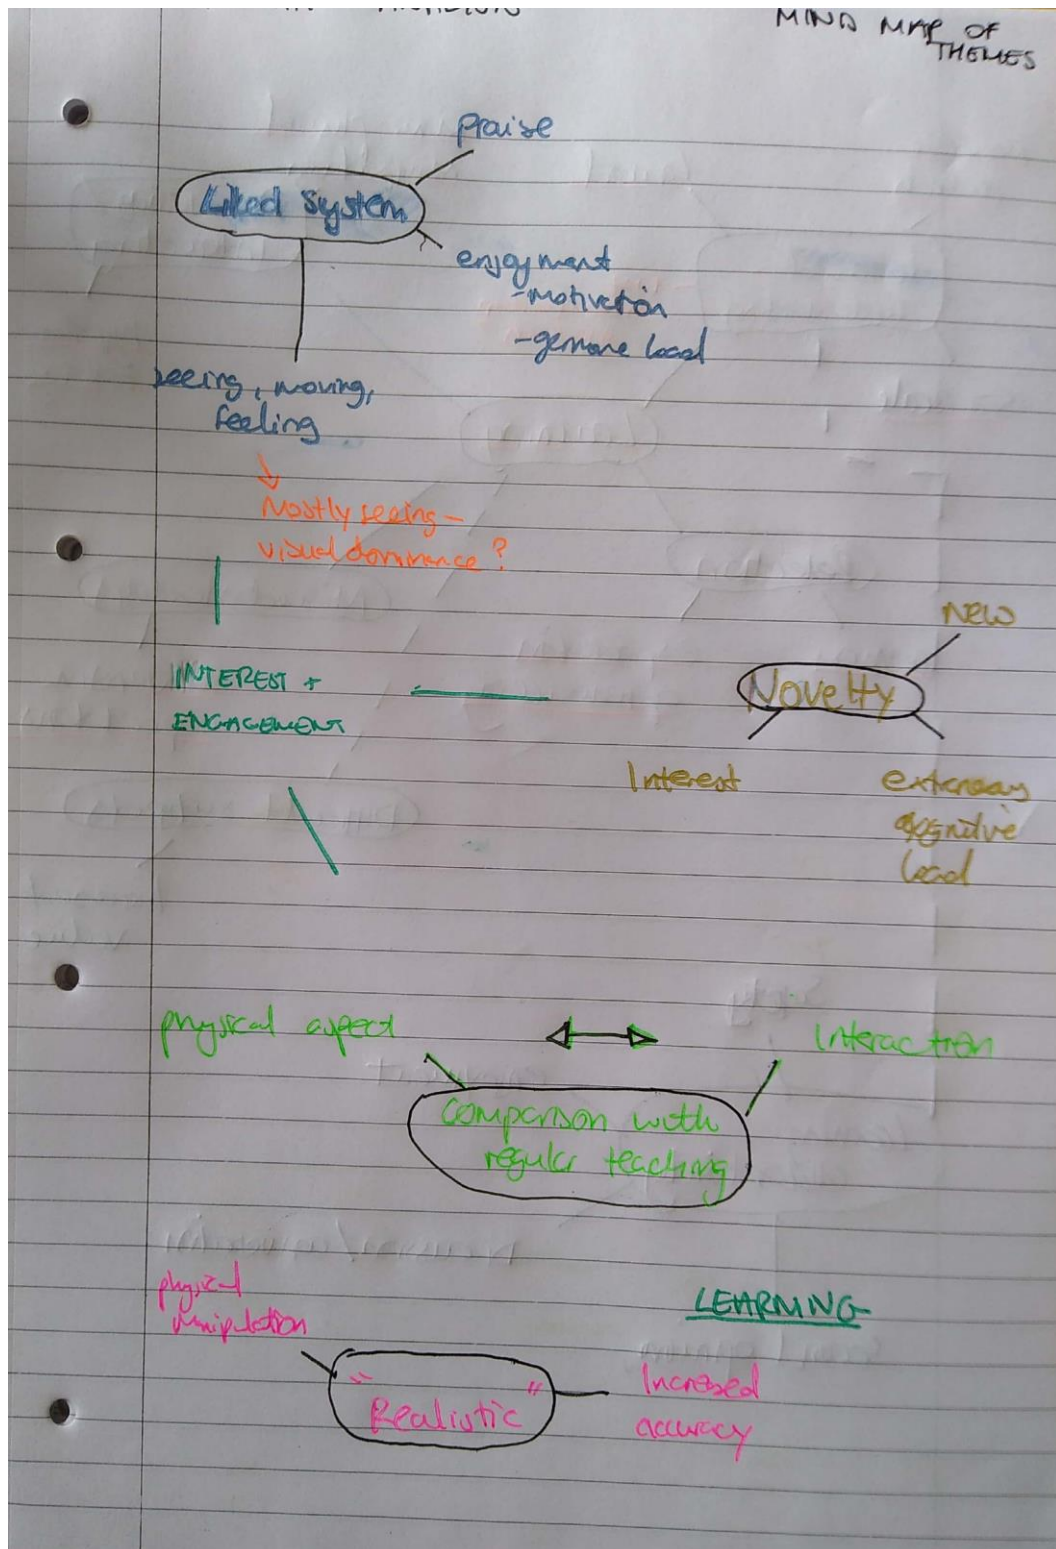 MIND MAP OF
THEMES
Praise
Liked System
enjoyment
-motivation
-germane load
seeing, moving,
feeling
Mostly seeing -
visual dominance?
New
INTEREST +
ENGAGEMENT
Novelty
Interest
cognitive
load
physical aspect
Interaction
Comparison with
regular teaching
physical
manipulation
LEARNING
"Realistic"
Increased
accuracy